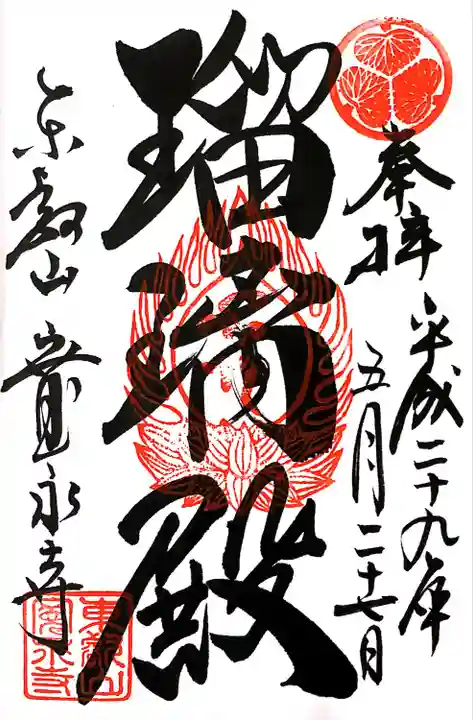 奉拝
平成二十九年
五月二十七日
瑠璃殿
東叡山寛永寺
東叡山
寛永寺